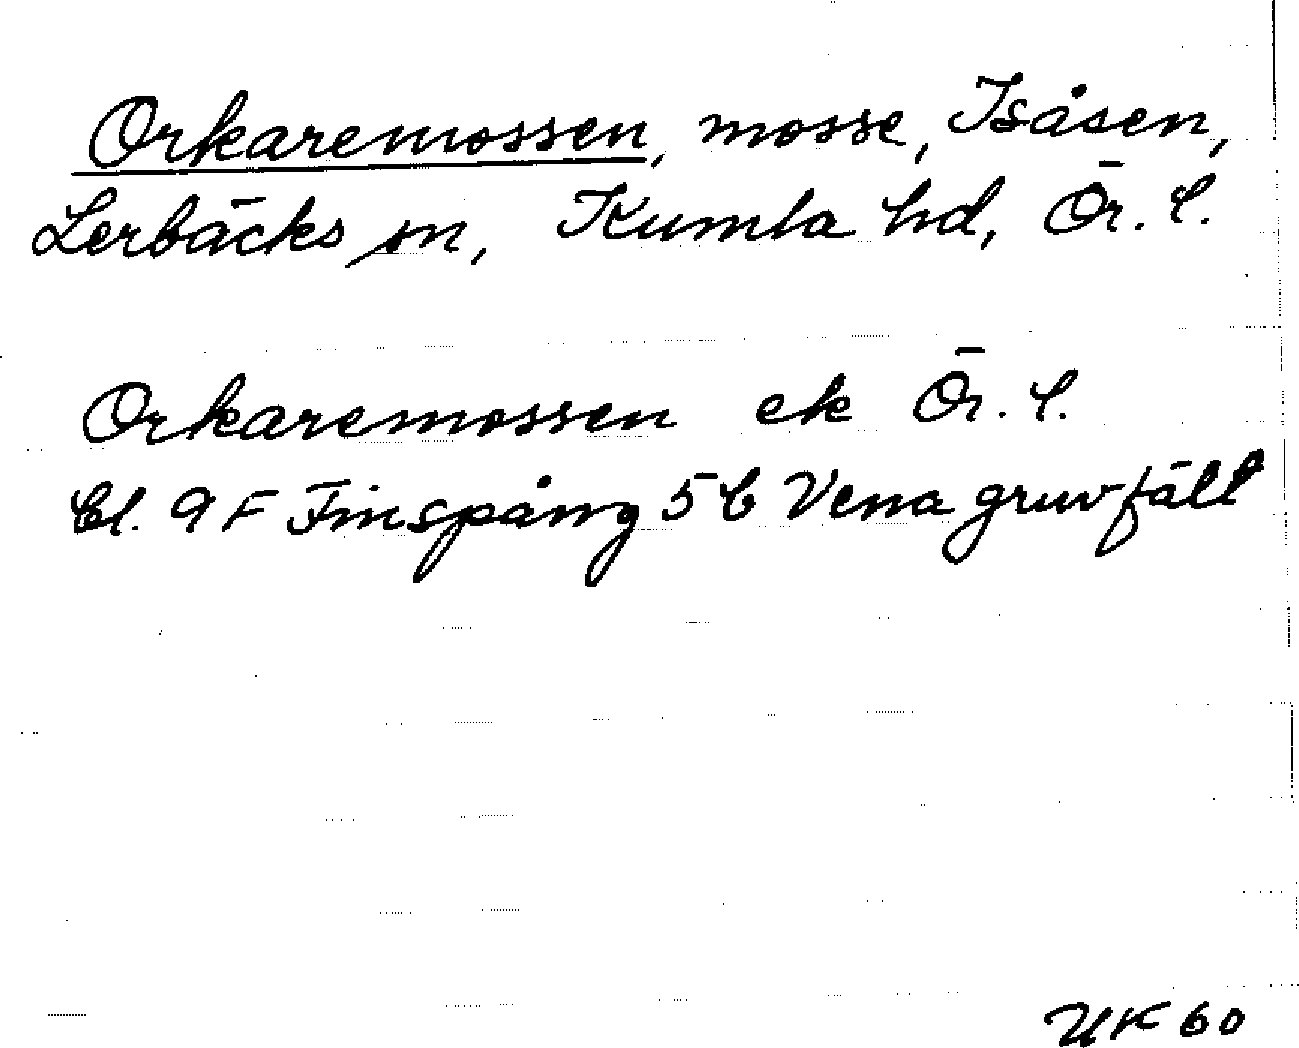 Orkaremossen, mosse, Isåsen,
Lerbäcks sn, Kumla hd, Ör. l.
Orkaremossen ek Ör. l.
bl. 9 F Finspång 5 b Vena gruvfält
UK 60